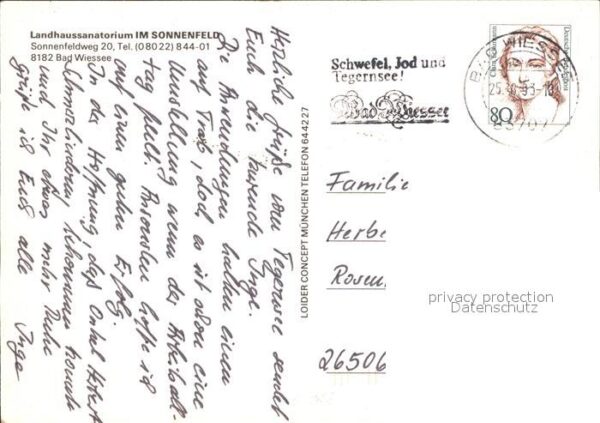 Landhaussanatorium IM SONNENFELD
Sonnenfeldweg 20, Tel. (08022) 844-01
8182 Bad Wiessee
Herzliche Grüße vom Tegernsee sendet
Euch die kurende Inge.
Die Anwendungen halten einen
auf Trab, doch es ist schon eine
Umstellung wenn der Arbeitsall-
tag fehlt. Ansonsten hoffe ich
auf einen guten Erfolg.
In der Hoffnung, daß Onkel Hubert
bekommen konnte
und Ihr etwas mehr Ruhe
grüße ich Euch alle
Inge
LOIDER CONCEPT MÜNCHEN TELEFON 644227
Schwefel, Jod und
Tegernsee!
Bad Wiessee
BAD WIESSEE
83707
Deutsche Bundespost
80
Familie
Herbe
Rosen
26506
privacy protection
Datenschutz